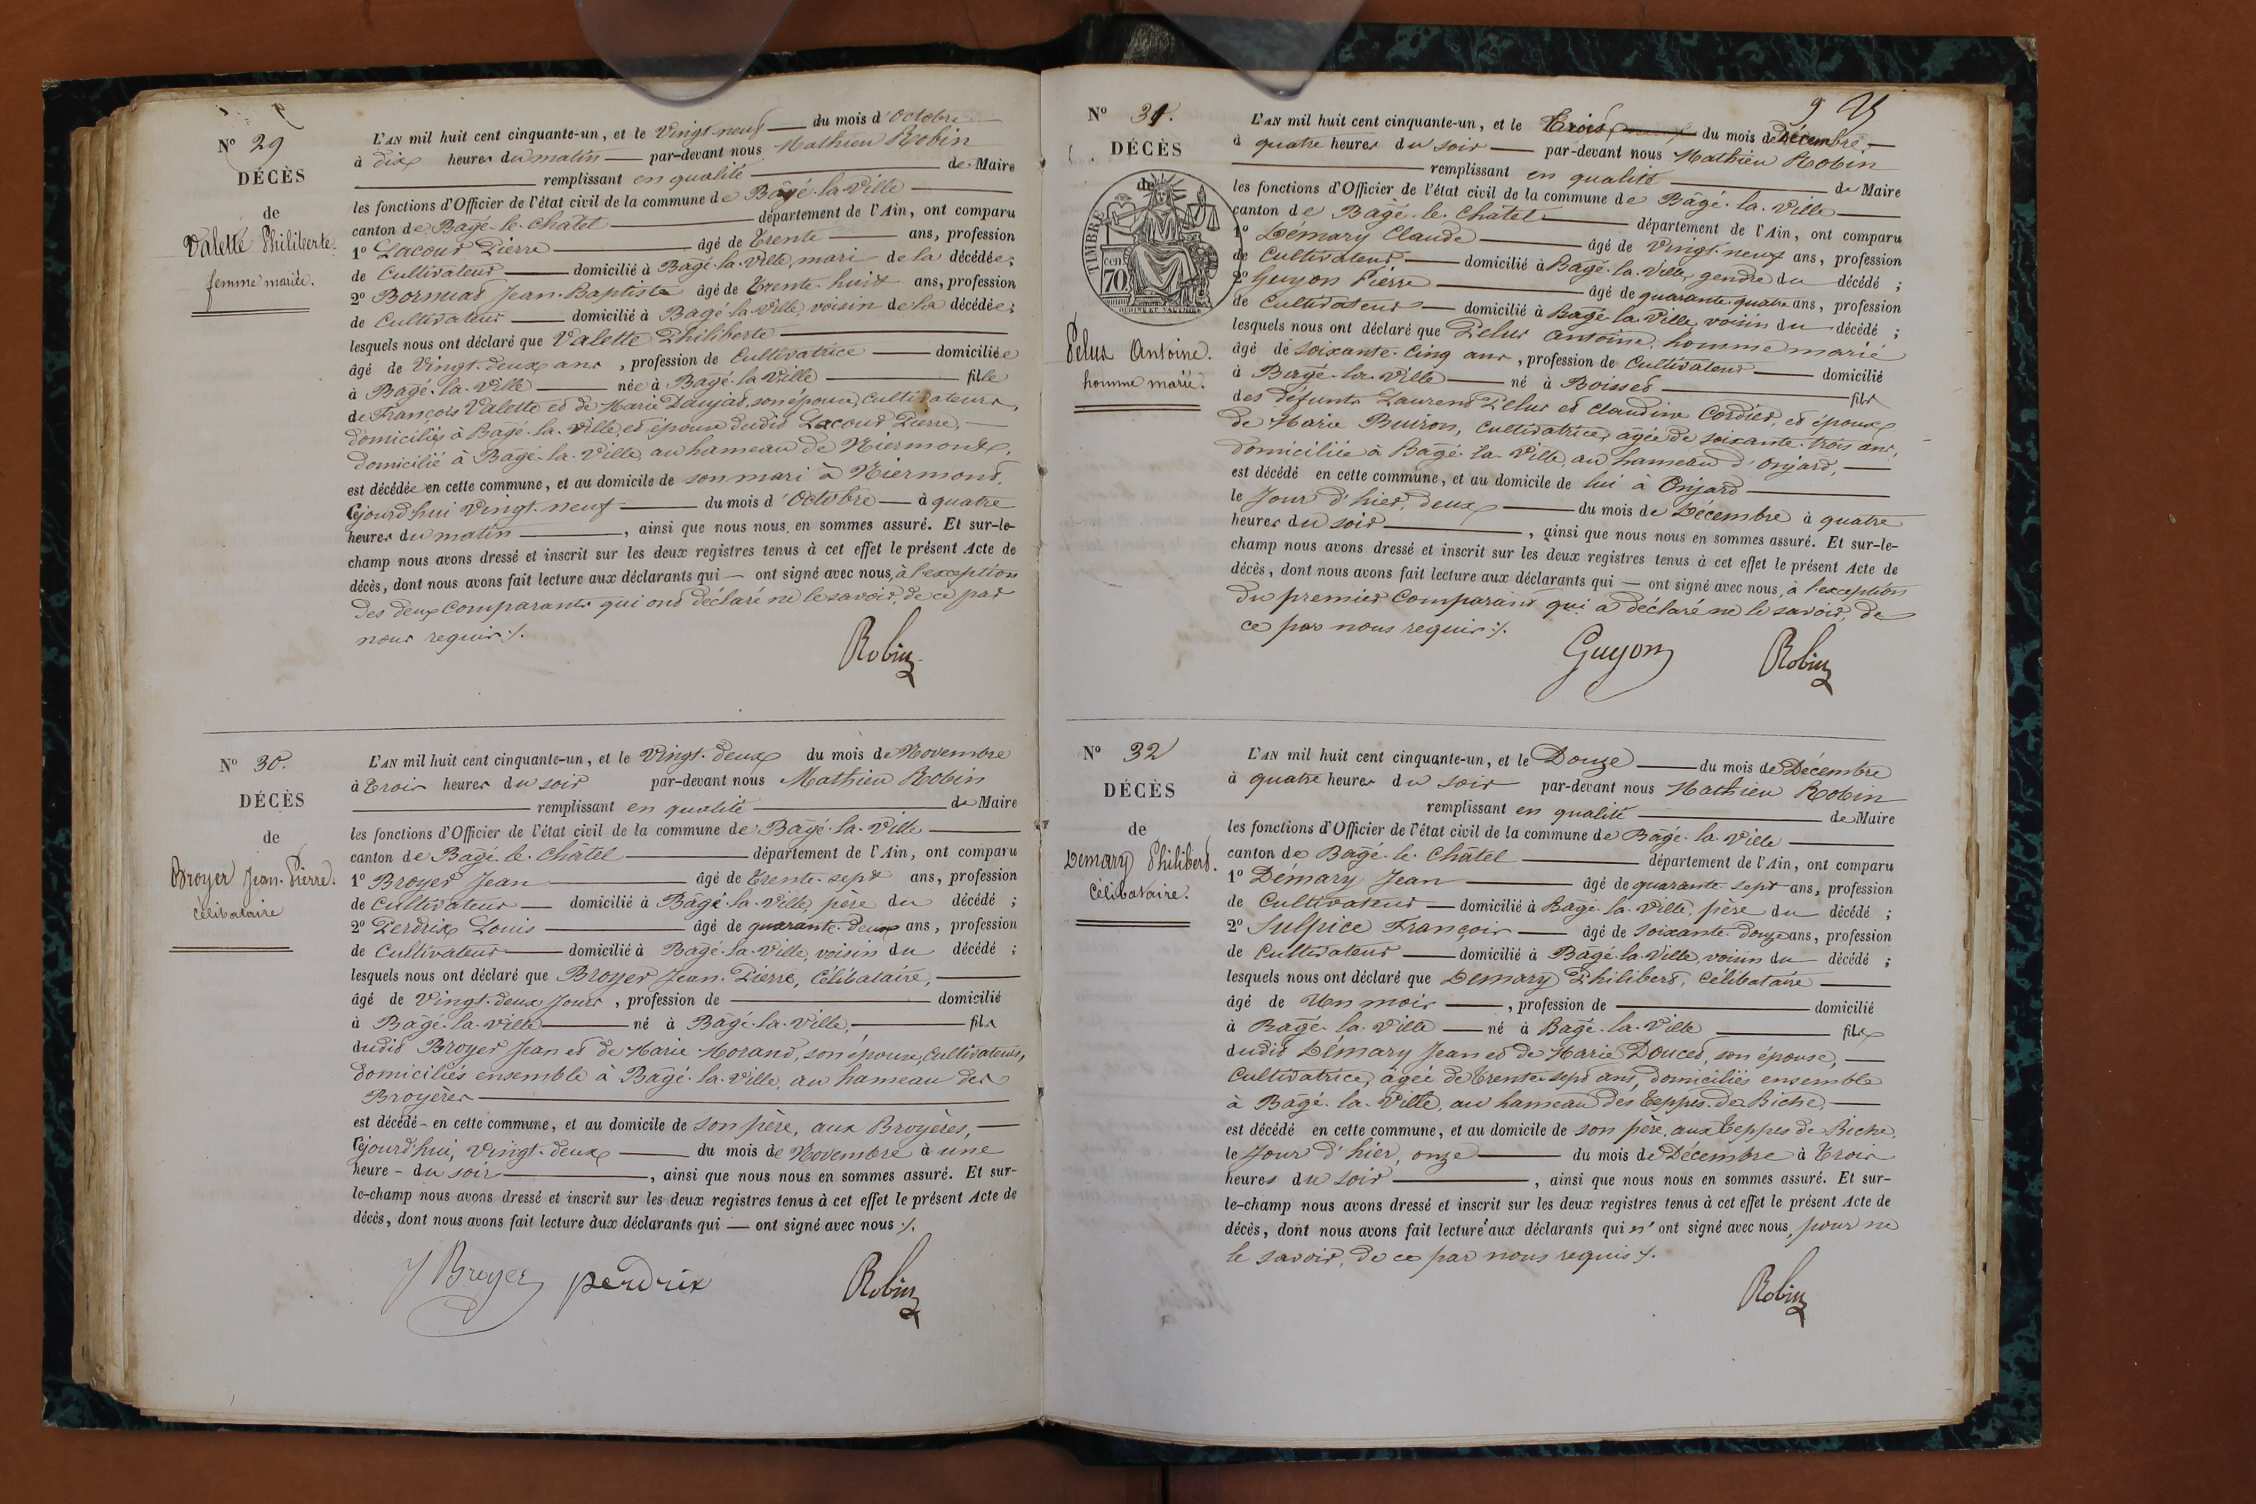 Nº 29
DÉCÈS
de
Valette Philiberte.
femme mariée.
L'AN mil huit cent cinquante-un, et le Vingt-neuf du mois d'Octobre
à dix heures du matin par-devant nous Mathieu Robin
remplissant en qualité de Maire
les fonctions d'Officier de l'état civil de la commune de Bâgé-la-Ville
canton de Bâgé-le-Châtel département de l'Ain, ont comparu
1º Lacour Pierre âgé de Trente ans, profession
de Cultivateur domicilié à Bâgé-la-Ville, mari de la décédée;
2º Jean-Baptiste âgé de Trente-huit ans, profession
de Cultivateur domicilié à Bâgé-la-Ville, voisin de la décédée;
lesquels nous ont déclaré que Valette Philiberte
âgé de Vingt-deux ans, profession de Cultivatrice domiciliée
à Bâgé-la-Ville née à Bâgé-la-Ville fille
de François Valette et de Marie Daujat, son épouse, Cultivateurs,
domiciliés à Bâgé-la-Ville, et épouse dudit Lacour Pierre,
domicilié à Bâgé-la-Ville, au hameau de Niermont,
est décédée en cette commune, et au domicile de son mari à Niermont,
Cejourd'hui Vingt-neuf du mois d'Octobre à quatre
heures du matin, ainsi que nous nous en sommes assuré. Et sur-le-
champ nous avons dressé et inscrit sur les deux registres tenus à cet effet le présent Acte de
décès, dont nous avons fait lecture aux déclarants qui ont signé avec nous, à l'exception
des deux comparants qui ont déclaré ne le savoir, de ce par
nous requis ./.
Robin
Nº 30.
DÉCÈS
de
Broyer Jean-Pierre.
célibataire
L'AN mil huit cent cinquante-un, et le Vingt-deux du mois de Novembre
à Trois heures du soir par-devant nous Mathieu Robin
remplissant en qualité de Maire
les fonctions d'Officier de l'état civil de la commune de Bâgé-la-Ville
canton de Bâgé-le-Châtel département de l'Ain, ont comparu
1º Broyer Jean âgé de Trente-sept ans, profession
de Cultivateur domicilié à Bâgé-la-Ville, père du décédé ;
2º Perdrix Louis âgé de quarante-deux ans, profession
de Cultivateur domicilié à Bâgé-la-Ville, voisin du décédé ;
lesquels nous ont déclaré que Broyer Jean-Pierre, Célibataire,
âgé de Vingt-deux Jours, profession de domicilié
à Bâgé-la-Ville né à Bâgé-la-Ville, fils
dudit Broyer Jean et de Marie Morand, son épouse, Cultivateurs,
domiciliés ensemble à Bâgé-la-Ville, au hameau des
Broyères
est décédé en cette commune, et au domicile de son père, aux Broyères,
Cejourd'hui, Vingt-deux du mois de Novembre à une
heure du soir, ainsi que nous nous en sommes assuré. Et sur-
le-champ nous avons dressé et inscrit sur les deux registres tenus à cet effet le présent Acte de
décès, dont nous avons fait lecture aux déclarants qui ont signé avec nous ./.
J Broyer perdrix Robin
9
Nº 31.
DÉCÈS
de
TIMBRE
70 cen
Pelus Antoine.
homme marié.
L'AN mil huit cent cinquante-un, et le Trois du mois de Décembre,
à quatre heures du soir par-devant nous Mathieu Robin
remplissant en qualité de Maire
les fonctions d'Officier de l'état civil de la commune de Bâgé-la-Ville
canton de Bâgé-le-Châtel département de l'Ain, ont comparu
1º Démary Claude âgé de Vingt-neuf ans, profession
de Cultivateur domicilié à Bâgé-la-Ville, gendre du décédé ;
2º Guyon Pierre âgé de quarante-quatre ans, profession
de Cultivateur domicilié à Bâgé-la-Ville, voisin du décédé ;
lesquels nous ont déclaré que Pelus Antoine, homme marié
âgé de soixante-cinq ans, profession de Cultivateur domicilié
à Bâgé-la-Ville né à Boisset fils
des défunts Laurent Pelus et Claudine Cordier, et époux
de Marie Buiron, Cultivatrice, âgée de soixante-trois ans,
domiciliée à Bâgé-la-Ville, au hameau d'Onjard,
est décédé en cette commune, et au domicile de lui à Onjard
le Jour d'hier, deux du mois de Décembre à quatre
heures du soir, ainsi que nous nous en sommes assuré. Et sur-le-
champ nous avons dressé et inscrit sur les deux registres tenus à cet effet le présent Acte de
décès, dont nous avons fait lecture aux déclarants qui ont signé avec nous, à l'exception
du premier Comparant qui a déclaré ne le savoir, de
ce par nous requis ./.
Guyon Robin
Nº 32
DÉCÈS
de
Demary Philibert.
Célibataire.
L'AN mil huit cent cinquante-un, et le Douze du mois de Décembre
à quatre heures du soir par-devant nous Mathieu Robin
remplissant en qualité de Maire
les fonctions d'Officier de l'état civil de la commune de Bâgé-la-Ville
canton de Bâgé-le-Châtel département de l'Ain, ont comparu
1º Démary Jean âgé de quarante-sept ans, profession
de Cultivateur domicilié à Bâgé-la-Ville, père du décédé ;
2º Sulpice François âgé de soixante-douze ans, profession
de Cultivateur domicilié à Bâgé-la-Ville, voisin du décédé ;
lesquels nous ont déclaré que Demary Philibert, Célibataire
âgé de Un mois, profession de domicilié
à Bâgé-la-Ville né à Bâgé-la-Ville fils
dudit Démary Jean et de Marie Doucet, son épouse,
Cultivatrice, âgée de Trente-sept ans, domiciliés ensemble
à Bâgé-la-Ville, au hameau des Teppes de Biche,
est décédé en cette commune, et au domicile de son père, aux Teppes de Biche,
le Jour d'hier, onze du mois de Décembre à Trois
heures du soir, ainsi que nous nous en sommes assuré. Et sur-
le-champ nous avons dressé et inscrit sur les deux registres tenus à cet effet le présent Acte de
décès, dont nous avons fait lecture aux déclarants qui n'ont signé avec nous, pour ne
le savoir, de ce par nous requis ./.
Robin